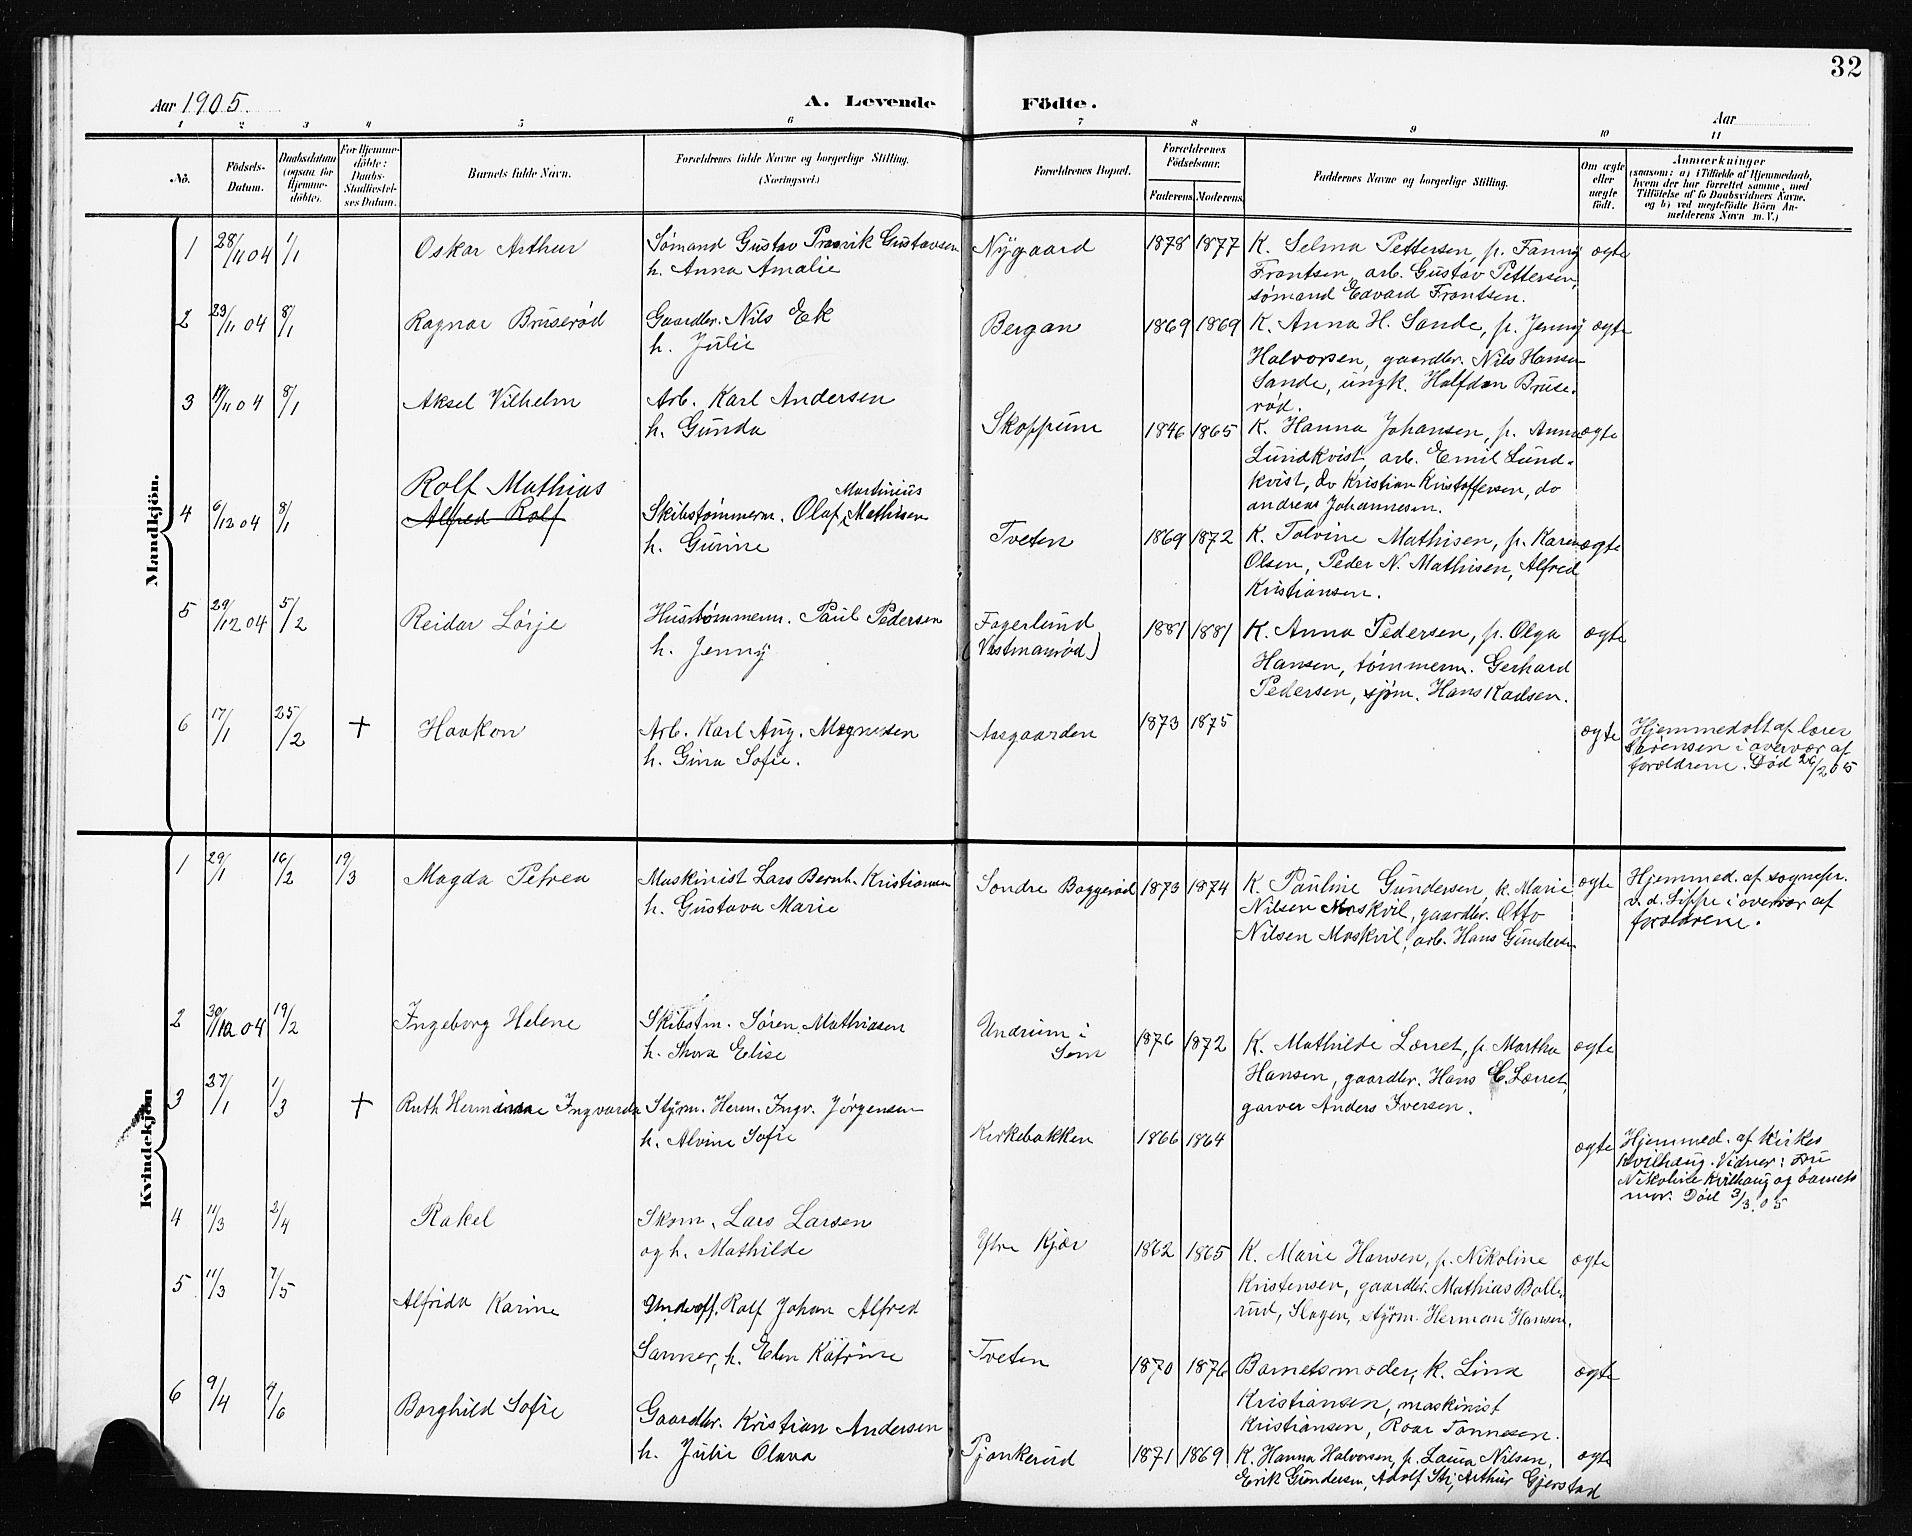 32
Aar 1905.
A. Levende Födte.
Aar
1 2 3 4 5 6 7 8 9 10 11
No.
Födsels-Datum.
Daabsdatum (ogsaa for Hjemmedöbte).
For Hjemmedöbte: Daabs-Stadfæstelses Datum.
Barnets fulde Navn.
Forældrenes fulde Navne og borgerlige Stilling. (Næringsvei.)
Forældrenes Bopæl.
Forældrenes Födselsaar.
Faderens Moderens
Faddernes Navne og borgerlige Stilling.
Om ægte eller uægte födt.
Anmærkninger
(saasom: a) i Tilfælde af Hjemmedaab, hvem der har forrettet samme, med Tilföielse af to Daabsvidners Navne, og b) ved uægtefödte Börn Anmelderens Navn m. V.)
Mandkjön.
1 28/11 04 1/1 Oskar Arthur
Sømand Gustav Gustavsen
h. Anna Amalie
Nygaard 1878 1877
K. Selma Pettersen, p. Fanny
Frantsen, arb. Gustav Pettersen,
sømand Edvard Frantsen.
ægte
2 29/11 04 8/1 Ragnar Bruserød
Gaardbr. Nils Ek
h. Julie
Bergan 1869 1869
K. Anna H. Sande, p. Jenny
Halvorsen, gaardbr. Nils Hansen
Sande, ungk. Halfdan Bruse-
rød.
ægte
3 19/11 04 8/1 Aksel Vilhelm
Arb. Karl Andersen
h. Gunda
Skoppum 1846 1865
K. Hanna Johansen, p. Anna
Lundkvist, arb. Emil Lund-
kvist, do Kristian Kristoffersen, do
Andreas Johannesen.
ægte
4 6/12 04 8/1 Rolf Mathias
Alfred Rolf
Skibstømmerm. Olaf Martinius Mathisen
h. Gurine
Tveten 1869 1872
K. Tolvine Mathisen, p. Karen
Olsen, Peder N. Mathisen, Alfred
Kristiansen.
ægte
5 29/12 04 5/2 Reidar Lørje
Hustømmerm. Paul Pedersen
h. Jenny
Fagerlund
(Vestmanrød)
1881 1881
K. Anna Pedersen, p. Olga
Hansen, tømmerm. Gerhard
Pedersen, sjøm. Hans Karlsen.
ægte
6 17/1 25/2 + Haakon
Arb. Karl Aug. Magnesen
h. Gina Sofie.
Aasgaarden 1873 1875
ægte
Hjemmedøbt af lærer
Sørensen i overvær af
forældrene. Død 26/2 05
Kvindekjön
1 29/1 16/2 19/3 Magda Petrea
Maskinist Lars Bernh. Kristiansen
h. Gustava Marie
Søndre Baggerød 1873 1874
K. Pauline Gundersen, k. Marie
Nilsen Moskvil, gaardbr. Otto
Nilsen Moskvil, arb. Hans Gundersen
ægte
Hjemmed. af sognepr.
v. d. Lippe i overvær af
forældrene.
2 30/12 04 19/2 Ingeborg Helene
Skibstm. Søren Mathiasen
h. Thora Elise
Undrum i
Sem
1876 1872
K. Mathilde Lørret, p. Martha
Hansen, gaardbr. Hans C. Lørret,
garver Anders Iversen.
ægte
3 27/1 1/3 + Ruth Hermine Ingvarda
Styrm. Herm. Ingv. Jørgensen
h. Alvine Sofie
Kirkebakken 1866 1864
ægte
Hjemmed. af kirkes.
Kvilhaug. Vidner: Fru
Nikoline Kvilhaug og barnets
mor. Død 3/3 05
4 11/3 2/4 Rakel
Skom. Lars Larsen
og h. Mathilde
Ytre Kjær 1862 1865
K. Marie Hansen, p. Nikoline
Kristensen, gaardbr. Mathias Bolle-
rud, Slagen, styrm. Herman Hansen.
ægte
5 11/3 7/5 Alfrida Karine
Underoff. Rolf Johan Alfred
Sanner, h. Elen Katrine
Tveten 1870 1876
Barnets moder, k. Lina
Kristiansen, maskinist
Kristiansen, Roar Tønnesen.
ægte
6 9/4 4/6 Borghild Sofie
Gaardbr. Kristian Andersen
h. Julie Olava
Pjonkerud 1871 1869
K. Hanna Halvorsen, p. Laura Nilsen,
Erik Gundersen, Adolf Sti, Arthur Gjerstad
ægte